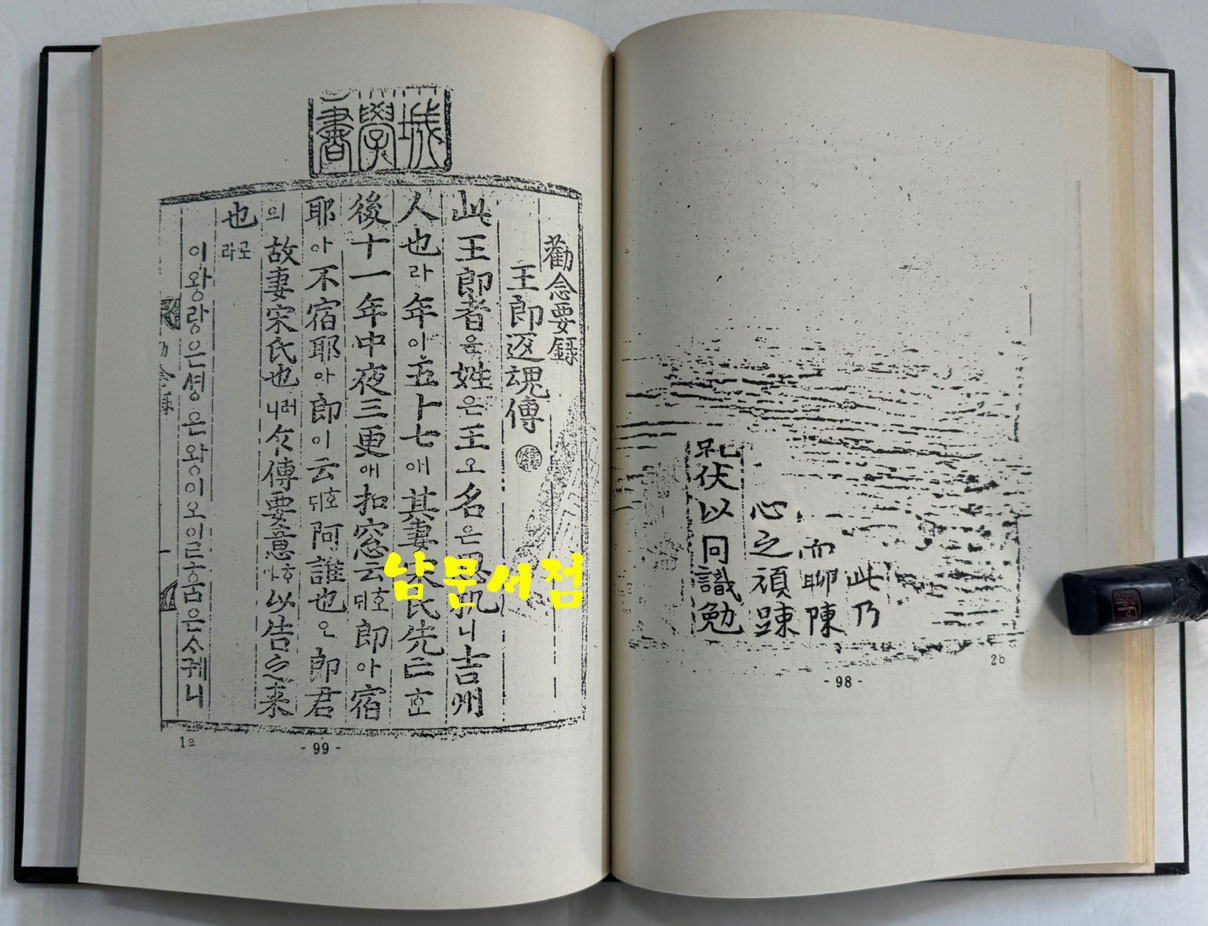 此乃
而聊陳
心之頑踈
伏以同識勉
2b
- 98 -
城學書
勸念要錄
王郎返魂傳
此王郎者 姓은王오名은 니吉州
人也라年이五十七애其妻宋氏先亡호
後十一年中夜三更애扣窓云호ᄃᆡ郎아宿
耶아不宿耶아郎이云호ᄃᆡ阿誰也오郎君
의故妻宋氏也러니 傳要意 以告之来
也로라
이왕랑은셩은왕이오이르홈은ᄉ궤니
1a
- 99 -
남문서점